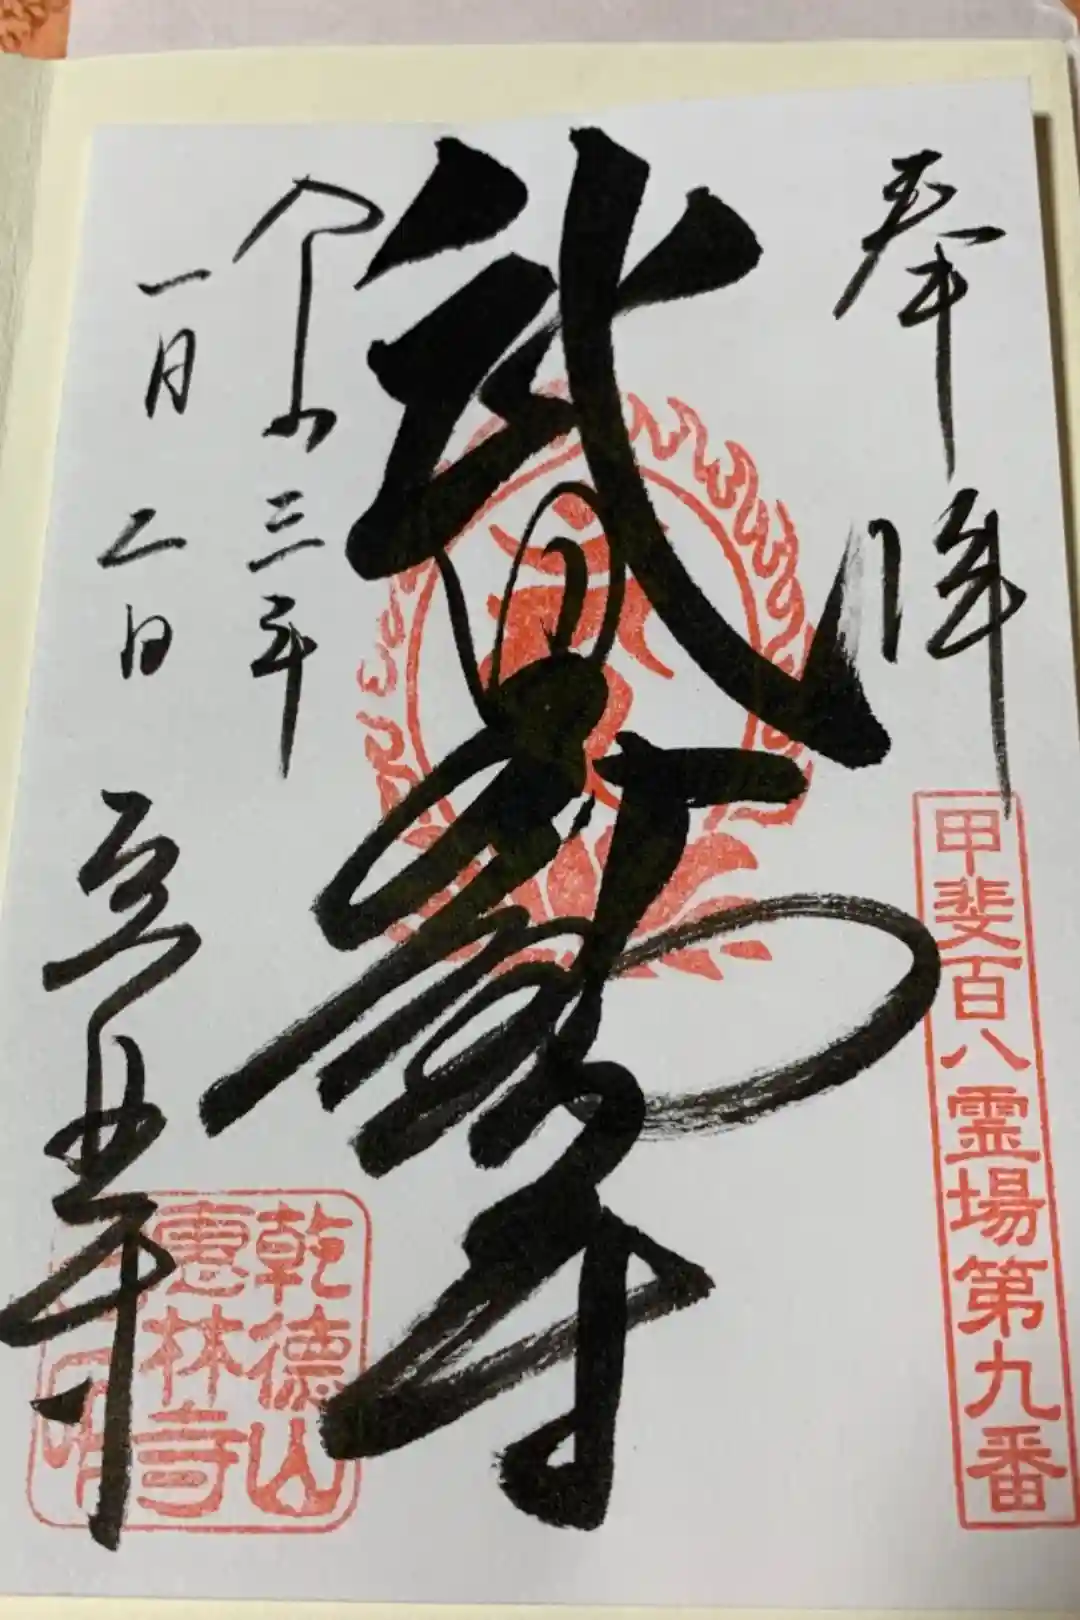 奉拝
甲斐百八霊場第九番
武田不動尊
令和三年
一月二日
恵林寺
乾德山
惠林寺